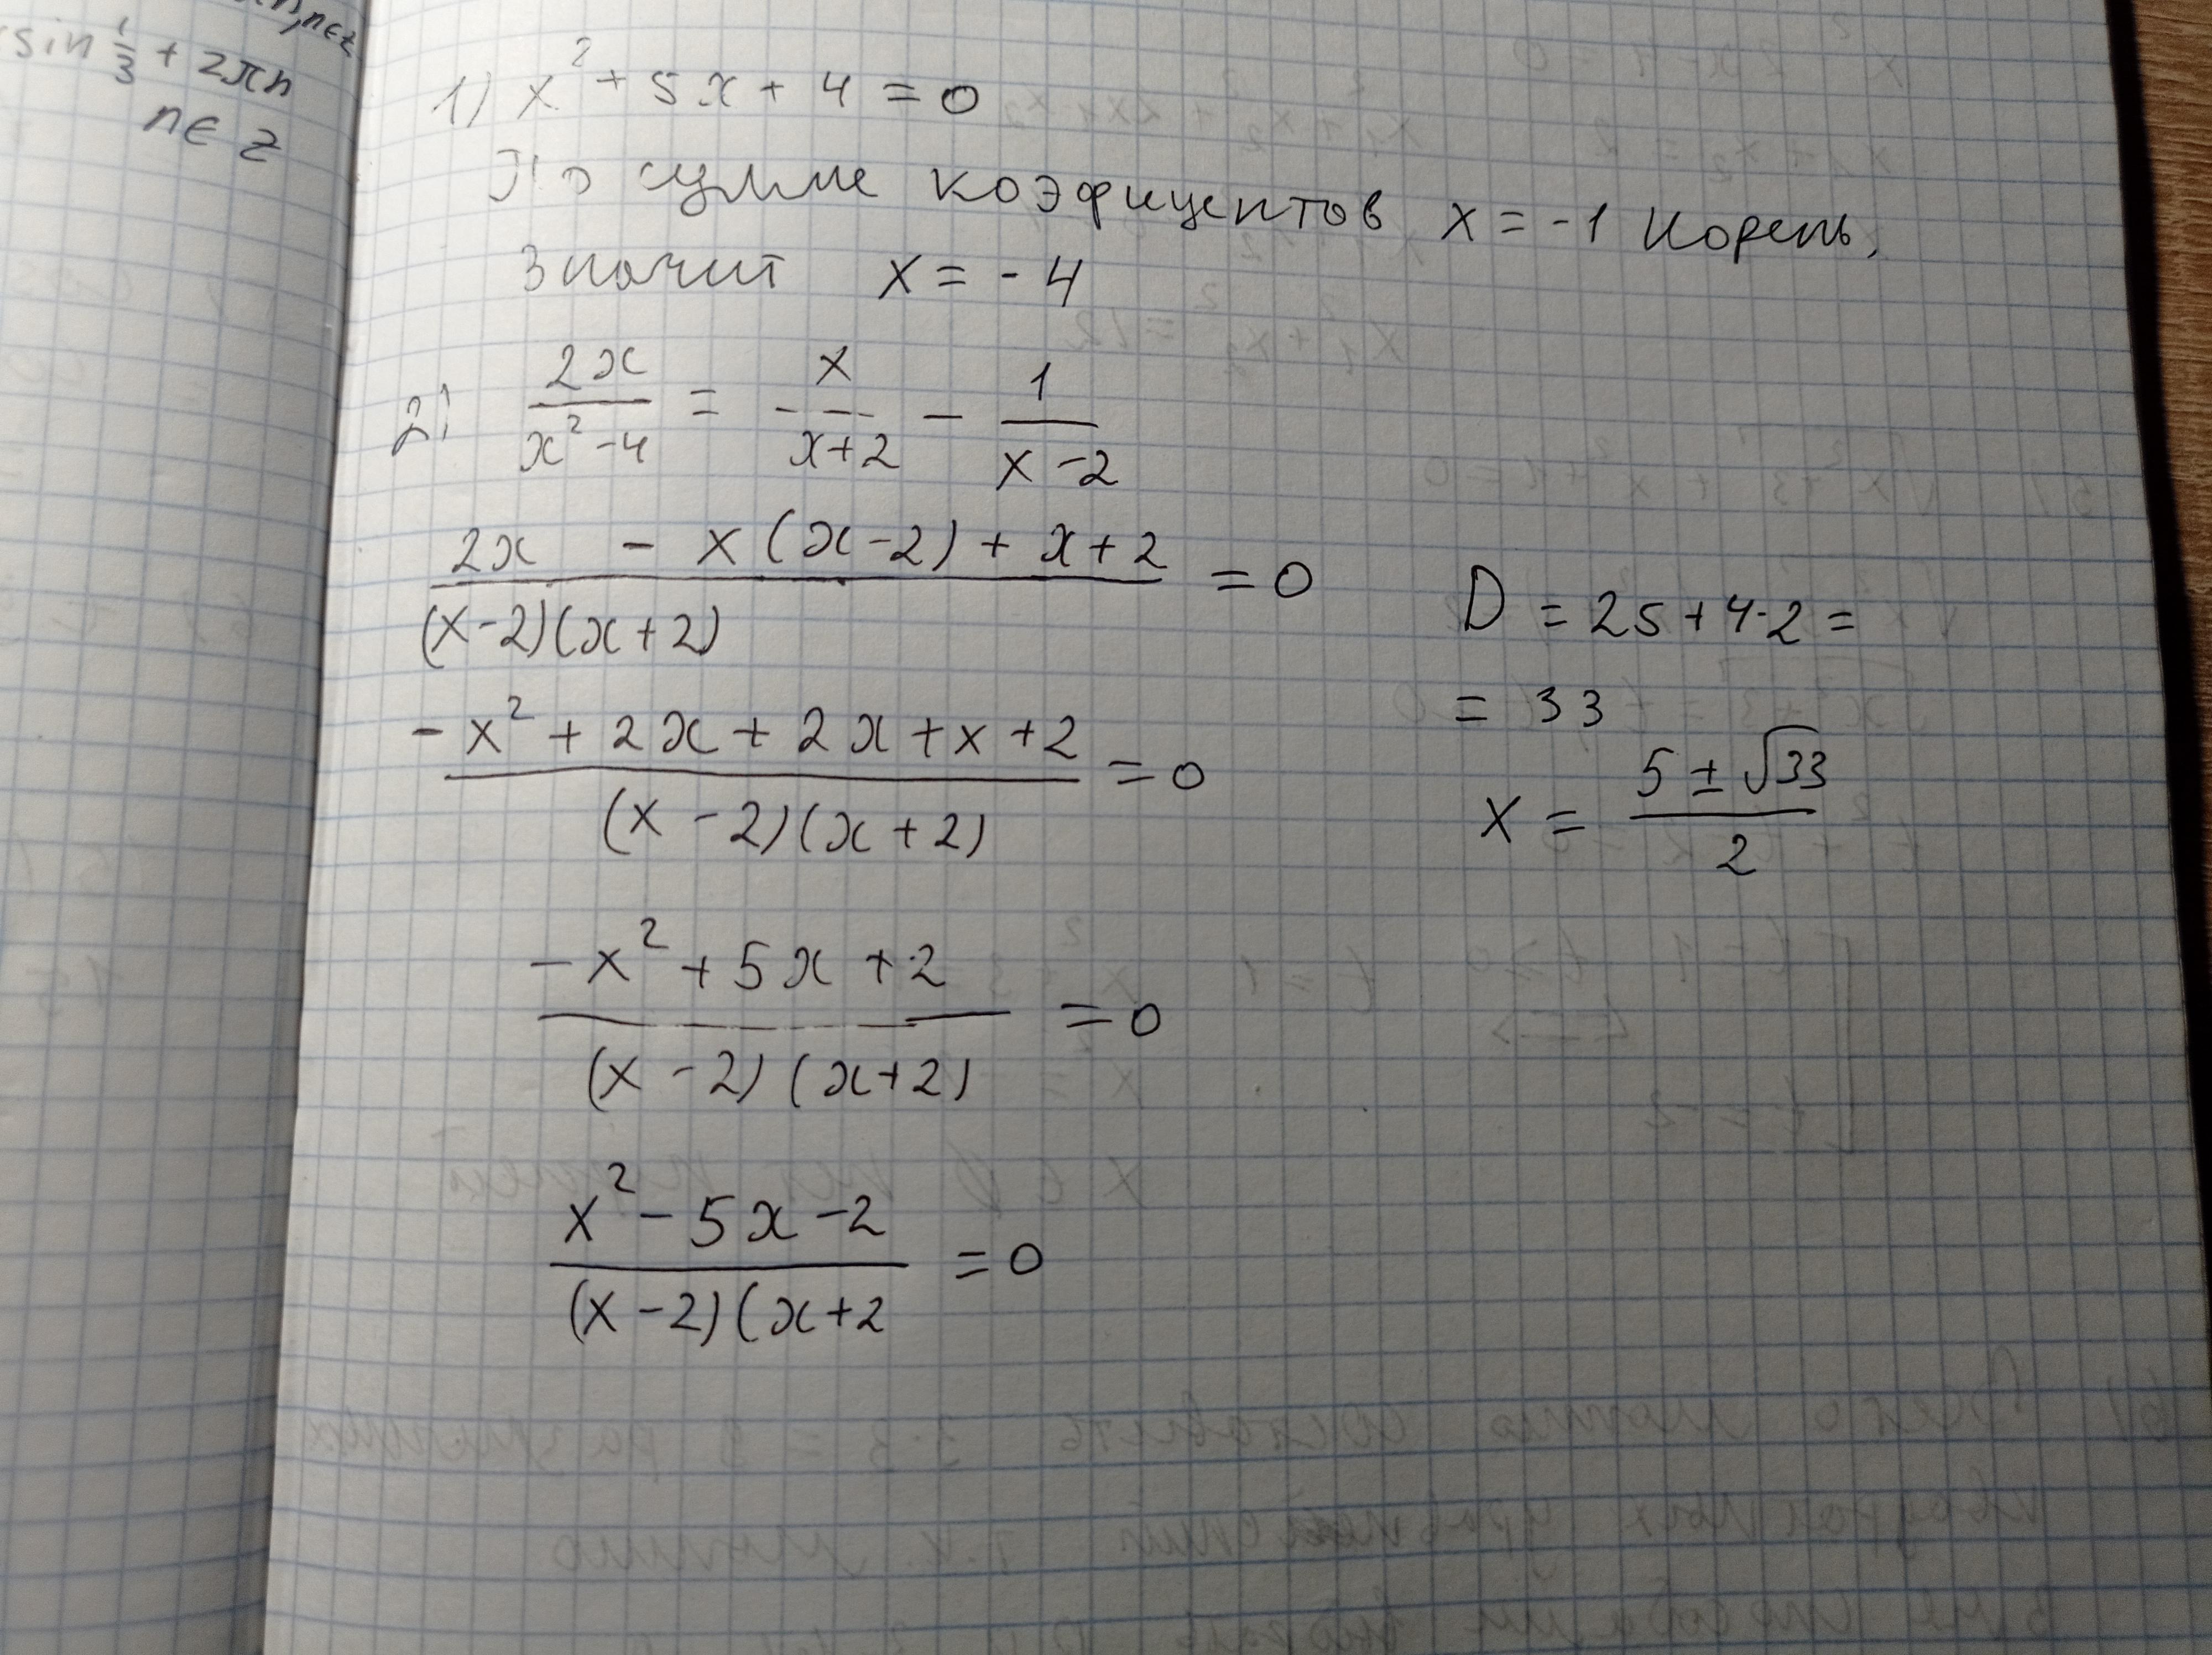 sin 1/3 + 2πn
n ∈ z
1) x² + 5x + 4 = 0
По сумме коэфицентов x = -1 корень,
Значит x = - 4
2) 2x/(x² - 4) = x/(x+2) - 1/(x-2)
(2x - x(x-2) + x+2)/((x-2)(x+2)) = 0
(-x² + 2x + 2x + x + 2)/((x-2)(x+2)) = 0
(-x² + 5x + 2)/((x-2)(x+2)) = 0
(x² - 5x - 2)/((x-2)(x+2 = 0
D = 25 + 4·2 =
= 33
x = (5 ± √33)/2